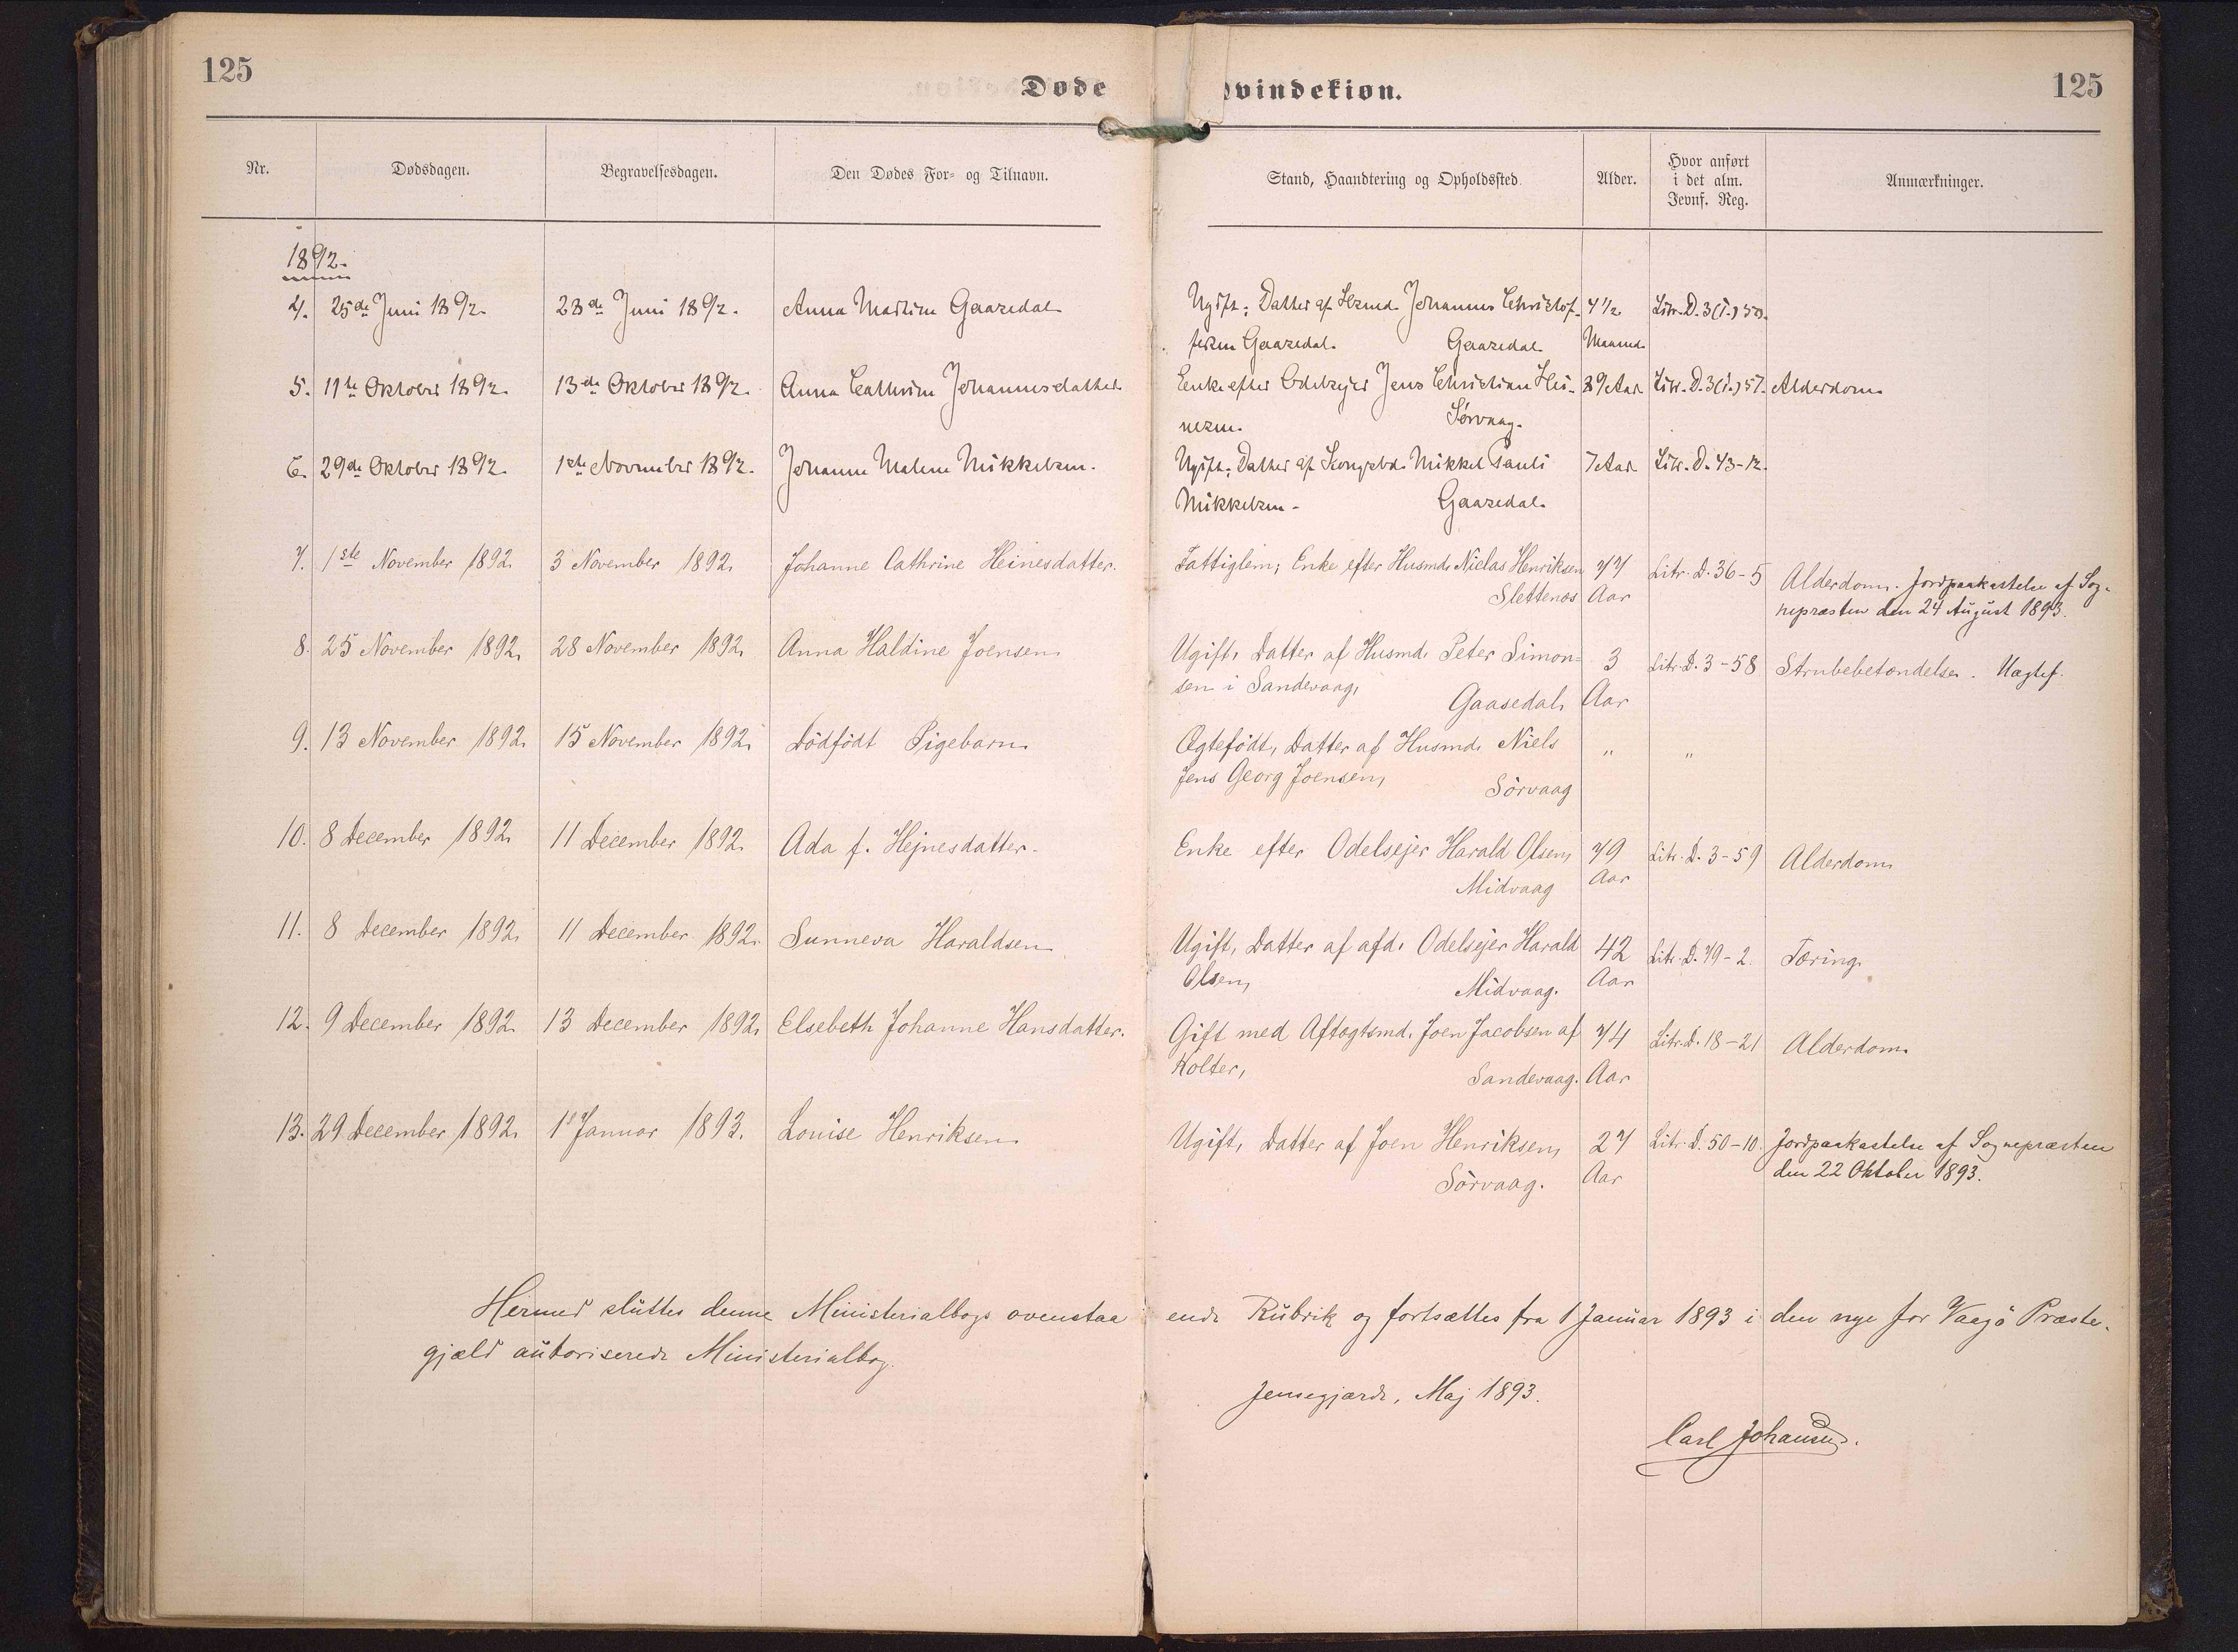 125
Døde
Qvindekiøn.
125
Nr.
Dødsdagen.
Begravelsesdagen.
Den Dødes For- og Tilnavn.
Stand, Haandtering og Opholdssted.
Alder.
Hvor anført
i det alm.
Jevnf. Reg.
Anmærkninger.
1892.
4. 25de Juni 1892. 28de Juni 1892. Anna Gaasedal Ugift; Datter af Johannes Christof- 4 1/2 Litr. D. 3(i.)50.
fersen Gaasedal. Gaasedal. Maaned.
5. 11te Oktober 1892. 13de Oktober 1892. Anna Cathrine Johannesdatter Enke efter Odelsejer Jens Christian Hei- 89 Aar Litr. D. 3(i.)57. Alderdom.
nesen. Sørvaag.
6. 29de Oktober 1892. 1ste November 1892. Johanne Malene Mikkelsen. Ugift; Datter af Kongsbd. Mikkel Pauli 7 Aar Litr. D. 43-12.
Mikkelsen. Gaasedal.
7. 1ste November 1892. 3 November 1892. Johanne Cathrine Heinesdatter. Fattiglem; Enke efter Husmd. Nielas Henriksen 77 Litr. D. 36-5 Alderdom. Jordpaakastelse af Sog-
Slettenæs Aar nepræsten den 24 August 1893.
8. 25 November 1892. 28 November 1892. Anna Haldine Joensen Ugift, Datter af Husmd. Peter Simon- 3 Litr. D. 3-58 Strubebetændelse. Uægtef.
sen i Sandevaag, Gaasedal, Aar
9. 13 November 1892. 15 November 1892. Dödfödt Pigebarn. Ægtefödt, Datter af Husmd. Niels " "
Jens Georg Joensen, Sörvaag
10. 8 December 1892. 11 December 1892. Ada f. Hejnesdatter. Enke efter Odelsejer Harald Olsen, 79 Litr. D. 3-59 Alderdom
Midvaag Aar
11. 8 December 1892. 11 December 1892. Sunneva Haraldsen Ugift, Datter af afd. Odelsejer Harald 42 Litr. D. 79-2. Tæring.
Olsen, Midvaag. Aar
12. 9 December 1892. 13 December 1892. Elsebeth Johanne Hansdatter. Gift med Aftægtsmd. Joen Jacobsen af 74 Litr. D. 18-21 Alderdom.
Kolter, Sandevaag. Aar
13. 29 December 1892. 1ste Januar 1893. Louise Henriksen Ugift, Datter af Joen Henriksen, 27 Litr. D. 50-10. Jordpaakastelse af Sognepræsten
Sörvaag. Aar den 22 Oktober 1893.
Hermed sluttes denne Ministerialbogs ovenstaa ende Rubrik og fortsættes fra 1 Januar 1893 i den nye for Vaagö Præste-
gjæld autoriserede Ministerialbog.
Jensegjærde, Maj 1893.
Carl Johansen.